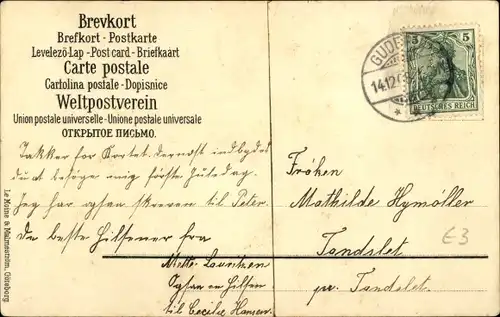 Brevkort
Brefkort - Postkarte
Levelező-Lap - Post card - Briefkaart
Carte postale
Cartolina postale - Dopisnice
Weltpostverein
Union postale universelle - Unione postale universale
ОТКРЫТОЕ ПИСЬМО.
Takker for Kortet. Dernæst indbydes
du at besøge mig første Juledag.
Jeg har ogsaa skreven til Peter.
De beste Hilsener fra
Mette Lauritzen
Ogsaa en Hilsen
til Cecilie Hansen.
Le Moine & Malmeström, Göteborg
14.12.
5 5
DEUTSCHES REICH
Fröken
Mathilde Hymöller
Tandslet
pr. Tandslet.
E3